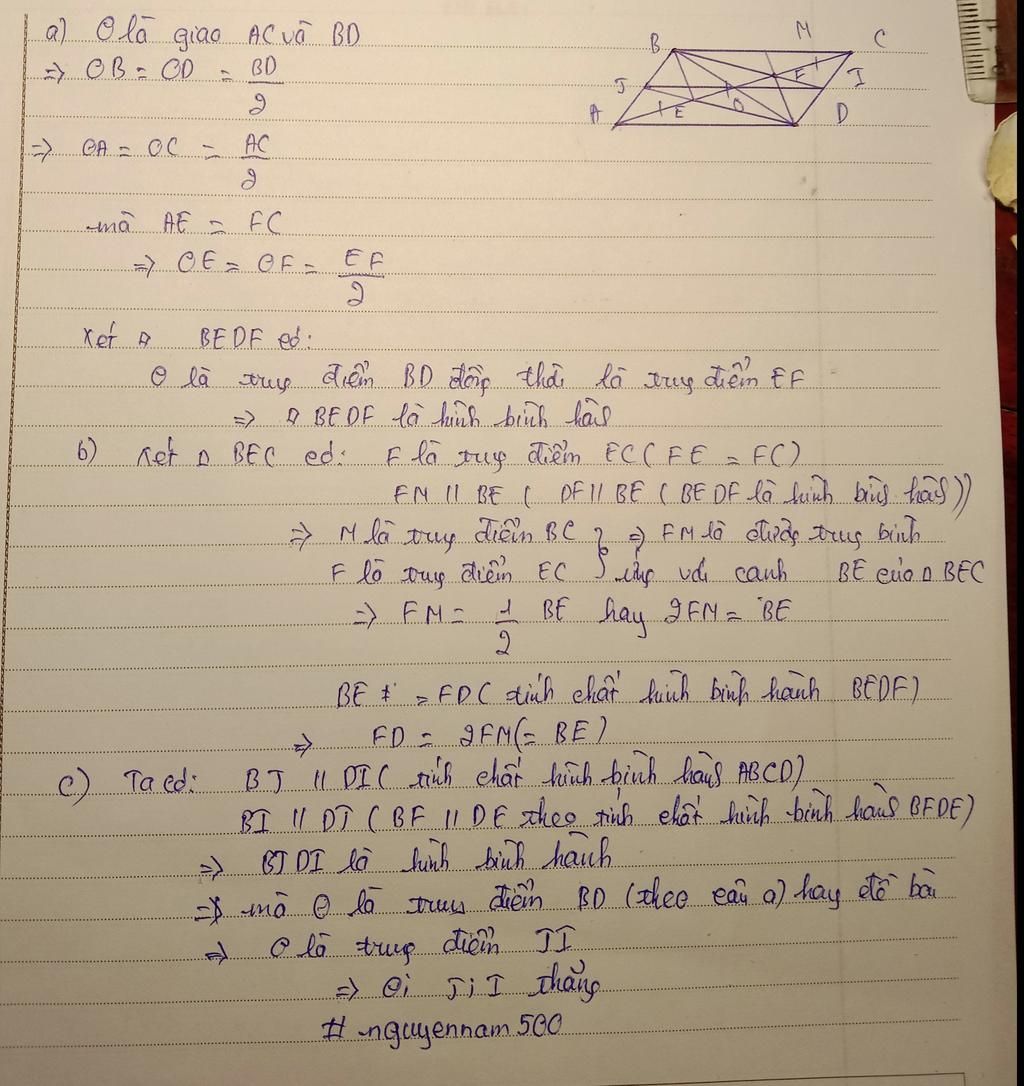 a) O là giao AC và BD
B M C
J F I
A E O D
=> OB = OD = BD/2
=> OA = OC = AC/2
mà AE = FC
=> OE = OF = EF/2
Xét ▱ BEDF có:
O là trung điểm BD đồng thời là trung điểm EF
=> ▱ BEDF là hình bình hành
b) Xét △ BEC có: F là trung điểm EC (FE = FC)
FM // BE ( DF // BE ( BEDF là hình bình hành))
=> M là trung điểm BC } => FM là đường trung bình
F là trung điểm EC } ứng với cạnh BE của △ BEC
=> FM = 1/2 BE hay 2FM = BE
BE = FD ( tính chất hình bình hành BEDF)
=> FD = 2FM (= BE)
c) Ta có: BJ // DI ( tính chất hình bình hành ABCD)
BI // DJ ( BF // DE theo tính chất hình bình hành BFDE)
=> BJDI là hình bình hành
=> mà O là trung điểm BD (theo câu a) hay đề bài
=> O là trung điểm JI
=> O; J; I thẳng
# nguyennam500